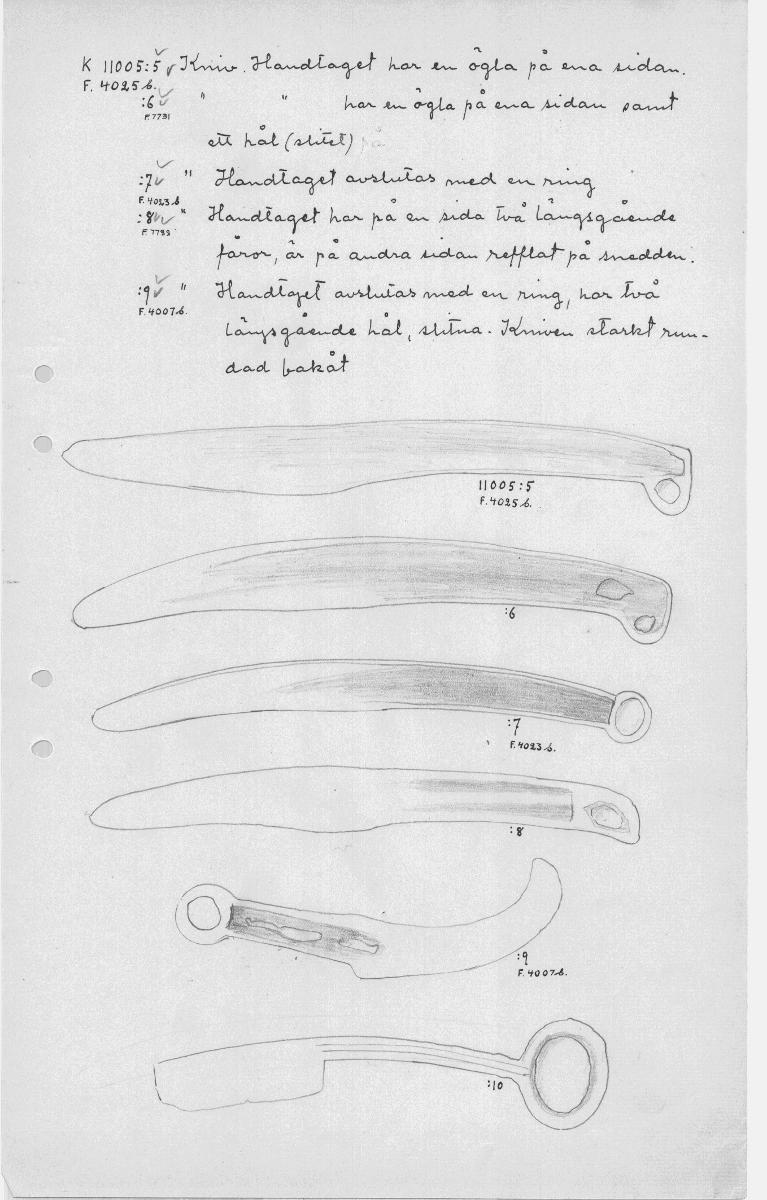 K 11005:5 Kniv. Handtaget har en ögla på ena sidan.
F. 4025 b.
:6 " " har en ögla på ena sidan samt
F. 7731
ett hål (slitet) på
:7 " Handtaget avslutas med en ring
F. 4023 b
:8 " Handtaget har på en sida två långsgående
F. 7733
fåror, är på andra sidan refflat på snedden.
:9 " Handtaget avslutas med en ring, har två
F. 4007 b.
långsgående hål, slitna. Kniven starkt run-
dad bakåt
11005:5
F. 4025 b.
:6
:7
F. 4023 b.
:8
:9
F. 4007 b.
:10